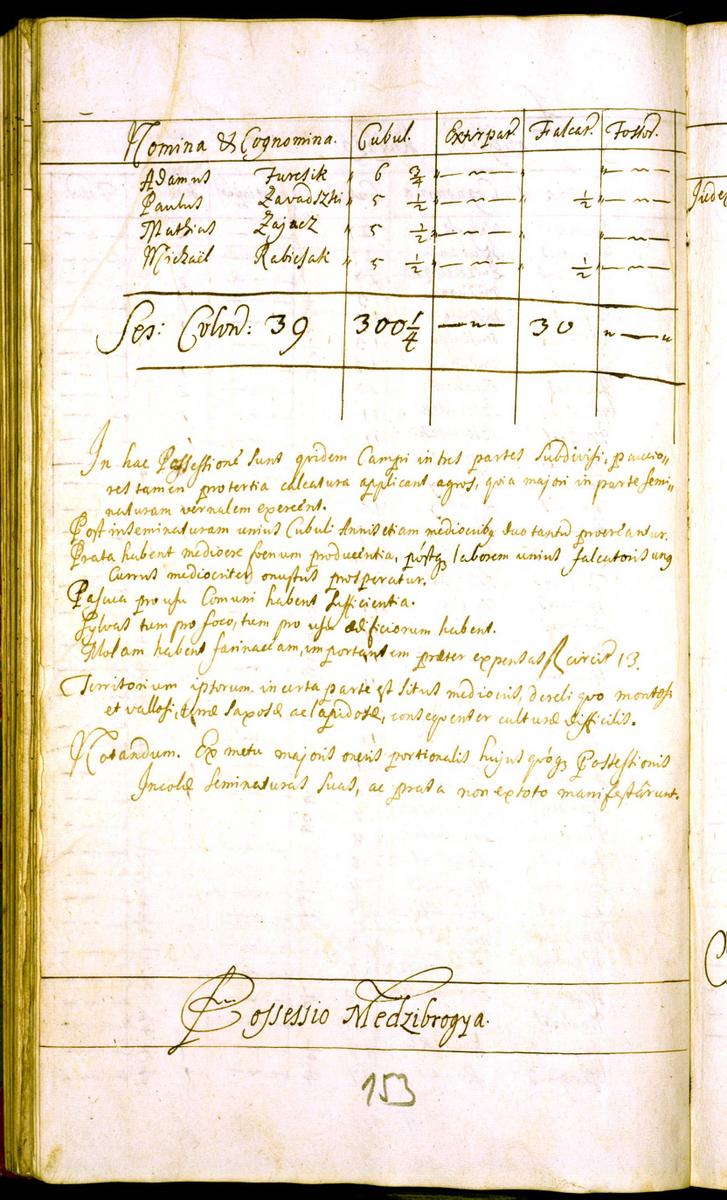 Nomina & Cognomina. Cubul. Extirpat. Falcat. Fossor.
Adamus Furcsik " 6 3/4 "—"— " "—"—
Paulus Zavadszki " 5 1/2 "—"— " 1/2 "—"—
Mathias Zajacz " 5 1/2 "—"— " "—"—
Michaël Rabicsak " 5 1/2 "—"— " 1/2 "—"—
Ses: Colon: 39 300 1/4 —"— 30 "—"
In hac Possessione sunt quidem Campi in tres partes subdivisi, paucio„
res tamen pro tertia calcatura applicant agros, quia majori in parte semi„
naturam vernalem exercent.
Post inseminaturam unius Cubuli Annis etiam mediocribq duo tantum
Prata habent mediocre foenum producentia, postqz laborem unius falcatoris unq
Currus mediocriter onustus prosperatur.
Pascua pro usu Comuni habent sufficientia.
Sylvas tum pro foco, tum pro usu ædificiorum habent.
Molam habent farinaceam, importantem præter expensas fl circit 13.
Territorium ipsorum in certa parte est situs mediocris, de reliquo montosi
et vallosi, terræ saxosæ ac lapidosæ, consequenter culturæ difficilis.
Notandum. Ex metu majoris oneris portionalis hujus quóqz Possessionis
Incolæ seminaturas suas, ac prata non ex toto manifestârunt.
Possessio Medzibrogya.
153
Jude